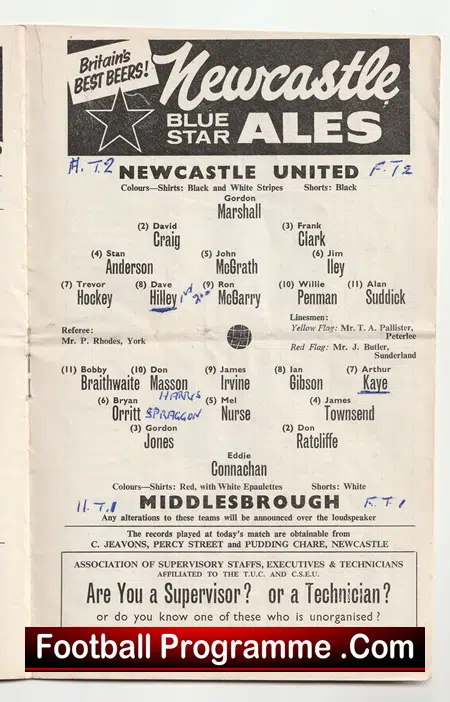 Britain's
BEST BEERS!
Newcastle
BLUE STAR ALES
H.T.2 NEWCASTLE UNITED F.T 2
Colours—Shirts: Black and White Stripes Shorts: Black
Gordon
Marshall
(2) David (3) Frank
Craig Clark
(4) Stan (5) John (6) Jim
Anderson McGrath Iley
(7) Trevor (8) Dave (9) Ron (10) Willie (11) Alan
Hockey Hilley McGarry Penman Suddick
Linesmen:
Referee: Yellow Flag: Mr. T. A. Pallister,
Mr. P. Rhodes, York Peterlee
Red Flag: Mr. J. Butler,
Sunderland
(11) Bobby (10) Don (9) James (8) Ian (7) Arthur
Braithwaite Masson Irvine Gibson Kaye
HARRIS
(6) Bryan (5) Mel (4) James
Orritt SPRAGGON Nurse Townsend
(3) Gordon (2) Don
Jones Ratcliffe
Eddie
Connachan
Colours—Shirts: Red, with White Epaulettes Shorts: White
H.T.1 MIDDLESBROUGH F.T.1
Any alterations to these teams will be announced over the loudspeaker
The records played at today's match are obtainable from
C. JEAVONS, PERCY STREET and PUDDING CHARE, NEWCASTLE
ASSOCIATION OF SUPERVISORY STAFFS, EXECUTIVES & TECHNICIANS
AFFILIATED TO THE T.U.C. AND C.S.E.U.
Are You a Supervisor? or a Technician?
or do you know one of these who is unorganised?
Football Programme .Com